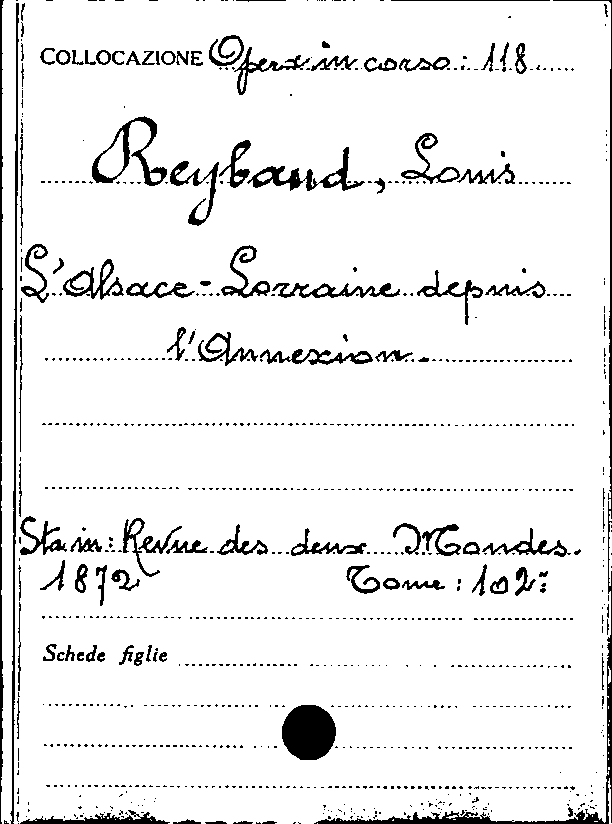 COLLOCAZIONE Opera in corso: 118
Reybaud, Louis
L'Alsace-Lorraine depuis
l'Annexion.
Sta in: Revue des deux Mondes.
1872 Tome: 102:
Schede figlie